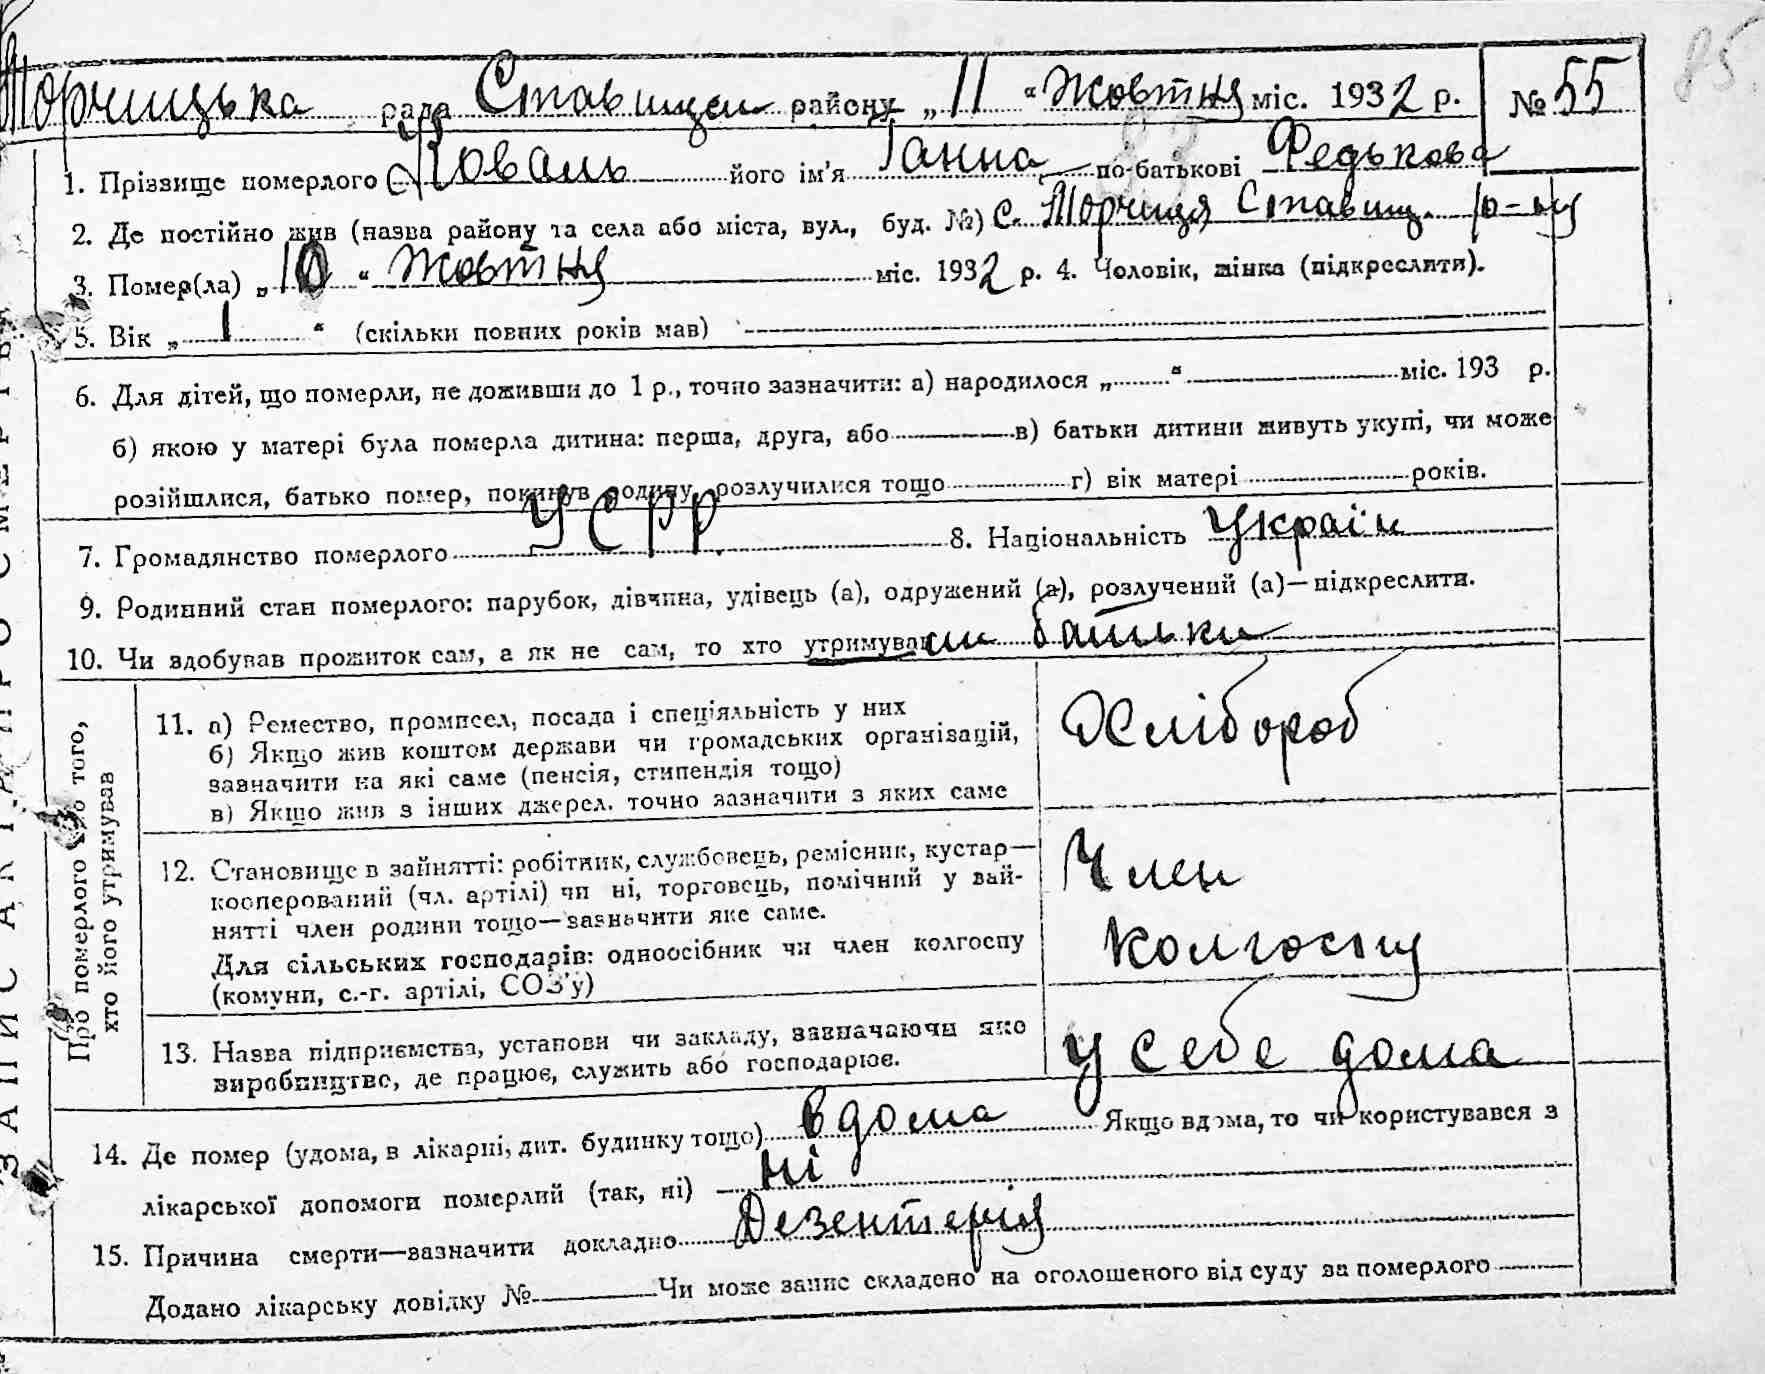 85
Торчицька рада Ставищен району „11“ Жовтня міс. 1932 р. № 55
1. Прізвище померлого(с) Коваль його ім'я Ганна по-батькові Федькова
2. Де постійно жив (назва району та села або міста, вул., буд. №) с. Торчиця Ставищ. р-ну
3. Помер(ла) „10“ Жовтня міс. 1932 р. 4. Чоловік, жінка (підкреслити).
5. Вік „1“ (скільки повних років мав)
6. Для дітей, що померли, не доживши до 1 р., точно зазначити: а) народилося „ “ міс. 193 р.
б) якою у матері була померла дитина: перша, друга, або в) батьки дитини живуть укупі, чи може
розійшлися, батько помер, покинув родину, розлучилися тощо г) вік матері років.
7. Громадянство померлого УСРР 8. Національність Україн
9. Родинний стан померлого: парубок, дівчина, удівець (а), одружений (а), розлучений (а)—підкреслити.
10. Чи здобував прожиток сам, а як не сам, то хто утримували батьки
ЗАПИС АКТА ПРО СМЕРТЬ
Про померлого або того, хто його утримував
11. а) Ремество, промисел, посада і спеціяльність у них
б) Якщо жив коштом держави чи громадських організацій,
зазначити на які саме (пенсія, стипендія тощо)
в) Якщо жив з інших джерел, точно зазначити з яких саме
Хлібороб
12. Становище в зайнятті: робітник, службовець, ремісник, кустар—
кооперований (чл. артілі) чи ні, торговець, помічний у зай-
нятті член родини тощо—зазначити яке саме.
Для сільських господарів: одноосібник чи член колгоспу
(комуни, с.-г. артілі, СОЗ'у)
Член
колгоспу
13. Назва підприємства, установи чи закладу, зазначаючи яко
виробництво, де працює, служить або господарює.
у себе дома
14. Де помер (удома, в лікарні, дит. будинку тощо) вдома Якщо вдома, то чи користувався з
лікарської допомоги померлий (так, ні) — ні
15. Причина смерти—зазначити докладно Дезентерія
Додано лікарську довідку № Чи може запис складено на оголошеного від суду за померлого